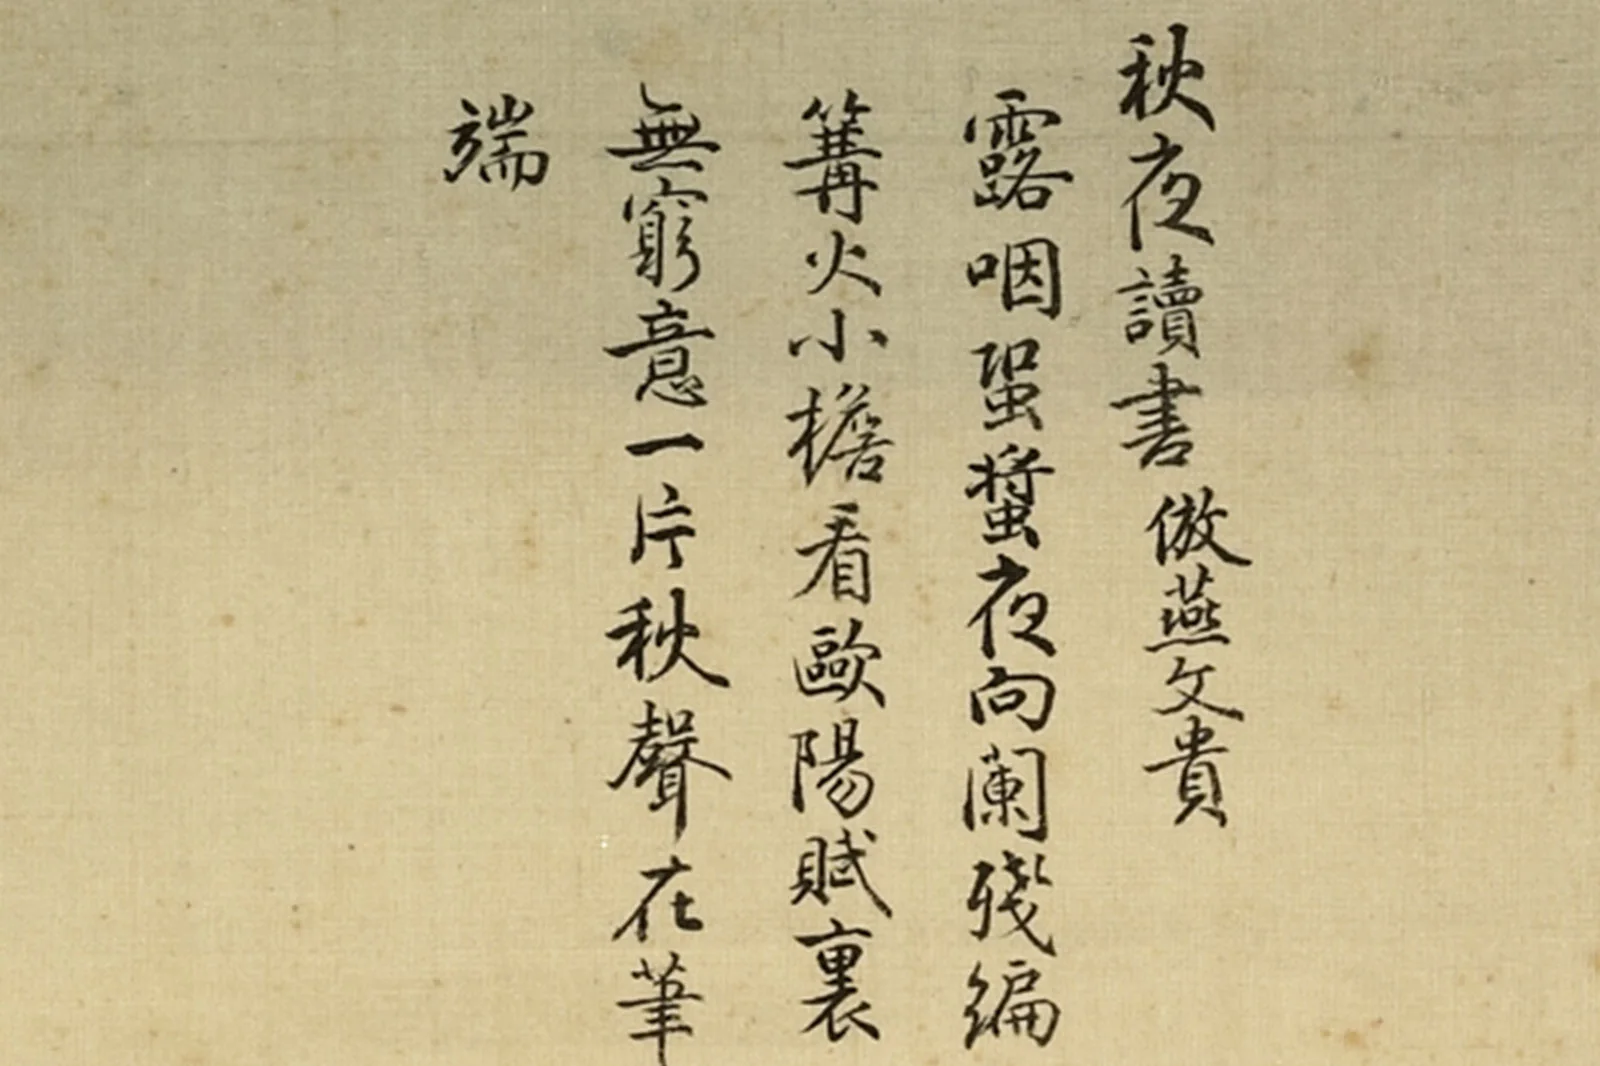 秋夜讀書 倣燕文貴
露咽蛩螿夜向闌殘編
篝火小檐看歐陽賦裏
無窮意一片秋聲在筆
端